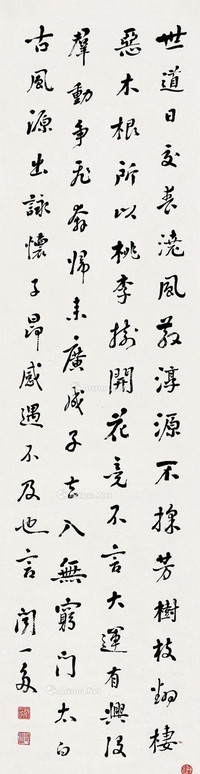 世道日交喪澆風散淳源不採芳樹枝翻棲
惡木根所以桃李樹開花竟不言大運有興沒
羣動爭飛奔歸來廣成子去入無窮門太白
古風源出詠懷子昂感遇不及也言 聞一多